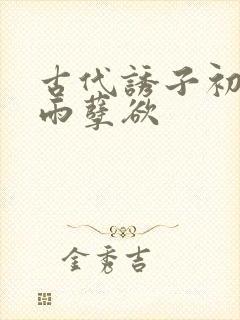 古代誘子初
雨孽欲
金秀吉